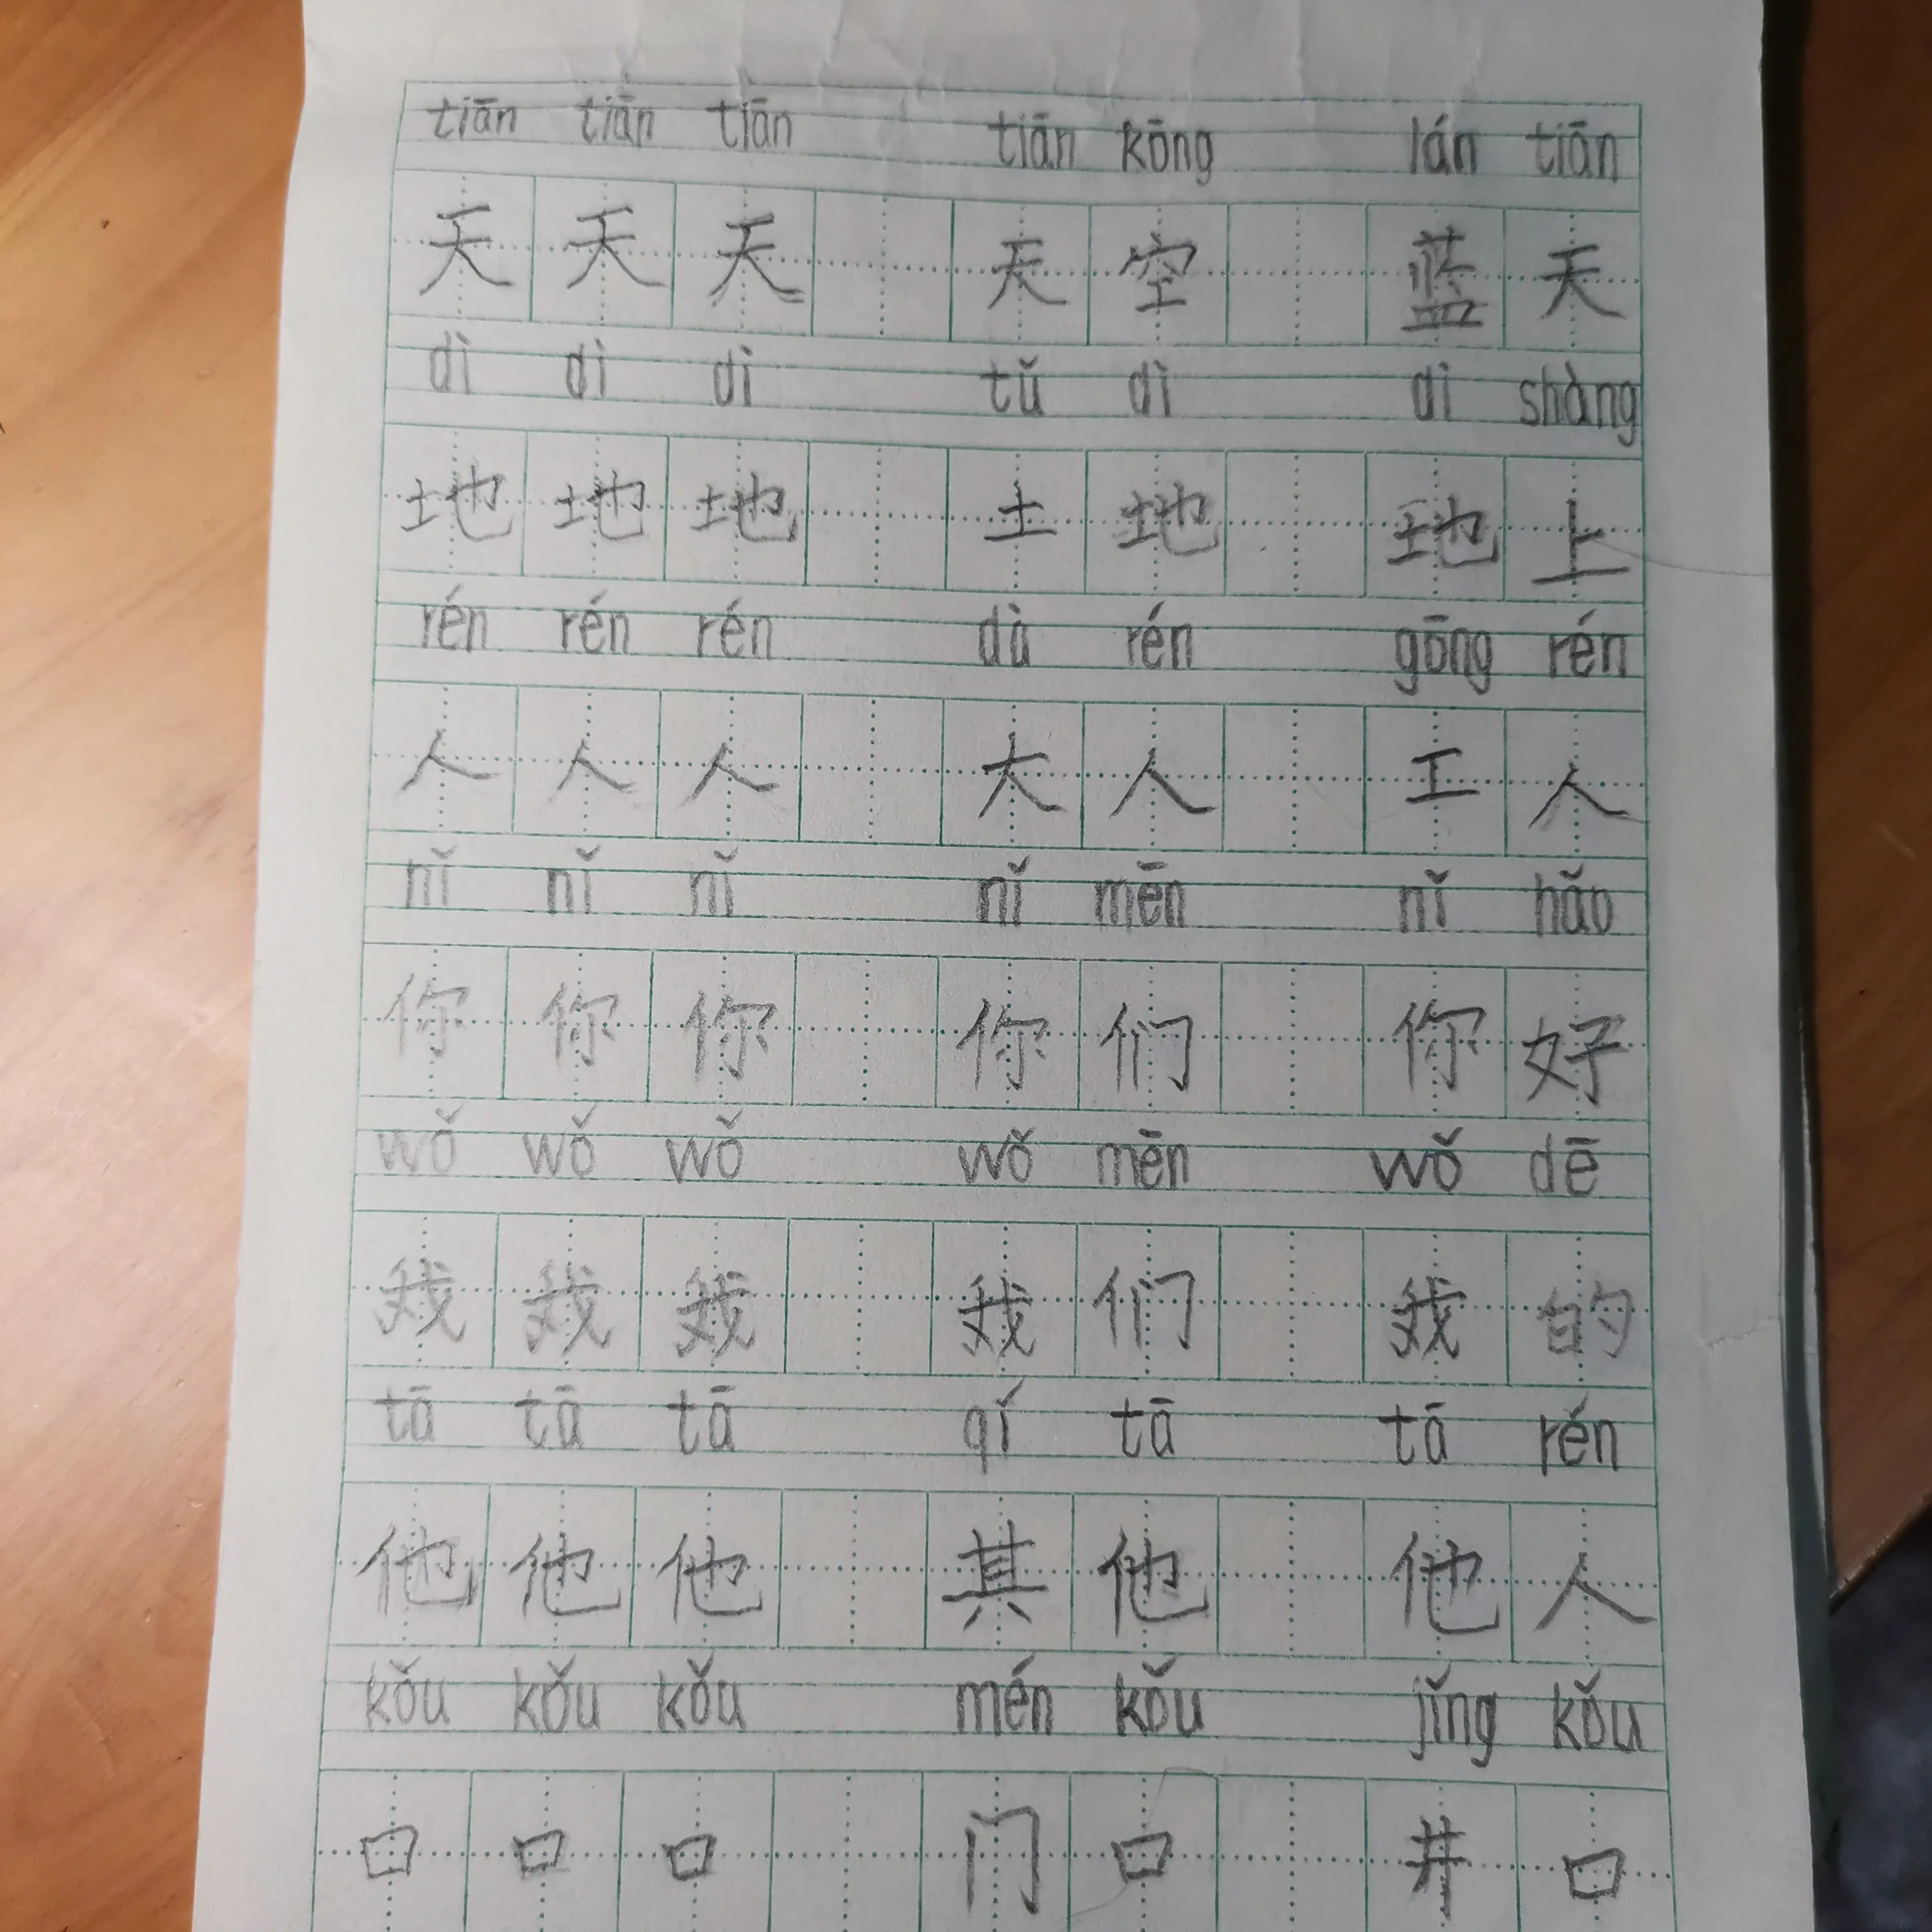 tiān tiān tiān tiān kōng lán tiān
天 天 天 天 空 蓝 天
dì dì dì tǔ dì dì shàng
地 地 地 土 地 地 上
rén rén rén dà rén gōng rén
人 人 人 大 人 工 人
nǐ nǐ nǐ nǐ mēn nǐ hǎo
你 你 你 你 们 你 好
wǒ wǒ wǒ wǒ mēn wǒ dē
我 我 我 我 们 我 的
tā tā tā qí tā tā rén
他 他 他 其 他 他 人
kǒu kǒu kǒu mén kǒu jǐng kǒu
口 口 口 门 口 井 口